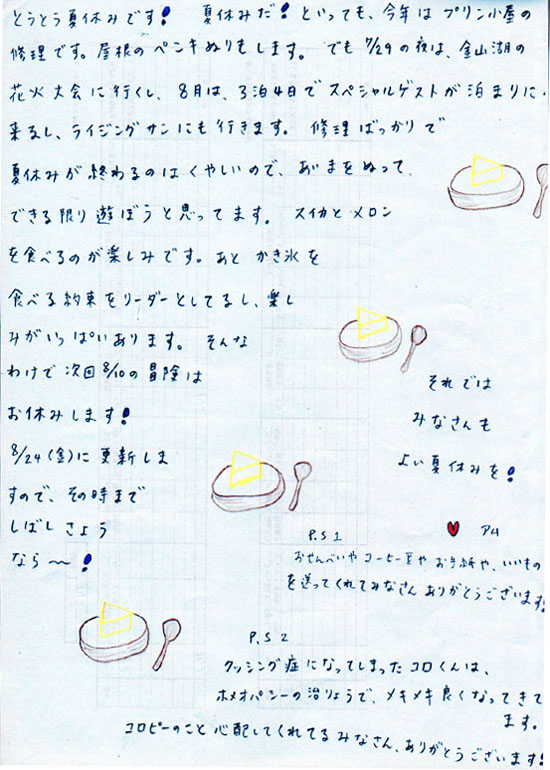 とうとう夏休みです! 夏休みだ!といっても、今年はプリン小屋の
修理です。屋根のペンキぬりもします。 でも7/29の夜は、金山湖の
花火大会に行くし、8月は、3泊4日でスペシャルゲストが泊まりに
来るし、ライジングサンにも行きます。 修理ばっかりで
夏休みが終わるのはくやしいので、あいまをぬって、
できる限り遊ぼうと思ってます。 スイカとメロン
を食べるのが楽しみです。あと かき氷を
食べる約束をリーダーとしてるし、楽し
みがいっぱいあります。 そんな
わけで次回8/10の冒険は
お休みします!
8/24(金)に更新しま
すので、その時まで
しばしさよう
なら〜!
それでは
みなさんも
よい夏休みを!
♥ アム
P.S 1
おせんべいやコーヒー豆やお手紙や、いいもの
を送ってくれてみなさんありがとうございます!
P.S 2
クッシング症になってしまったコロくんは、
ホメオパシーの治りょうで、メキメキ良くなってきて
ます。
コロピーのこと心配してくれてるみなさん、ありがとうございます!